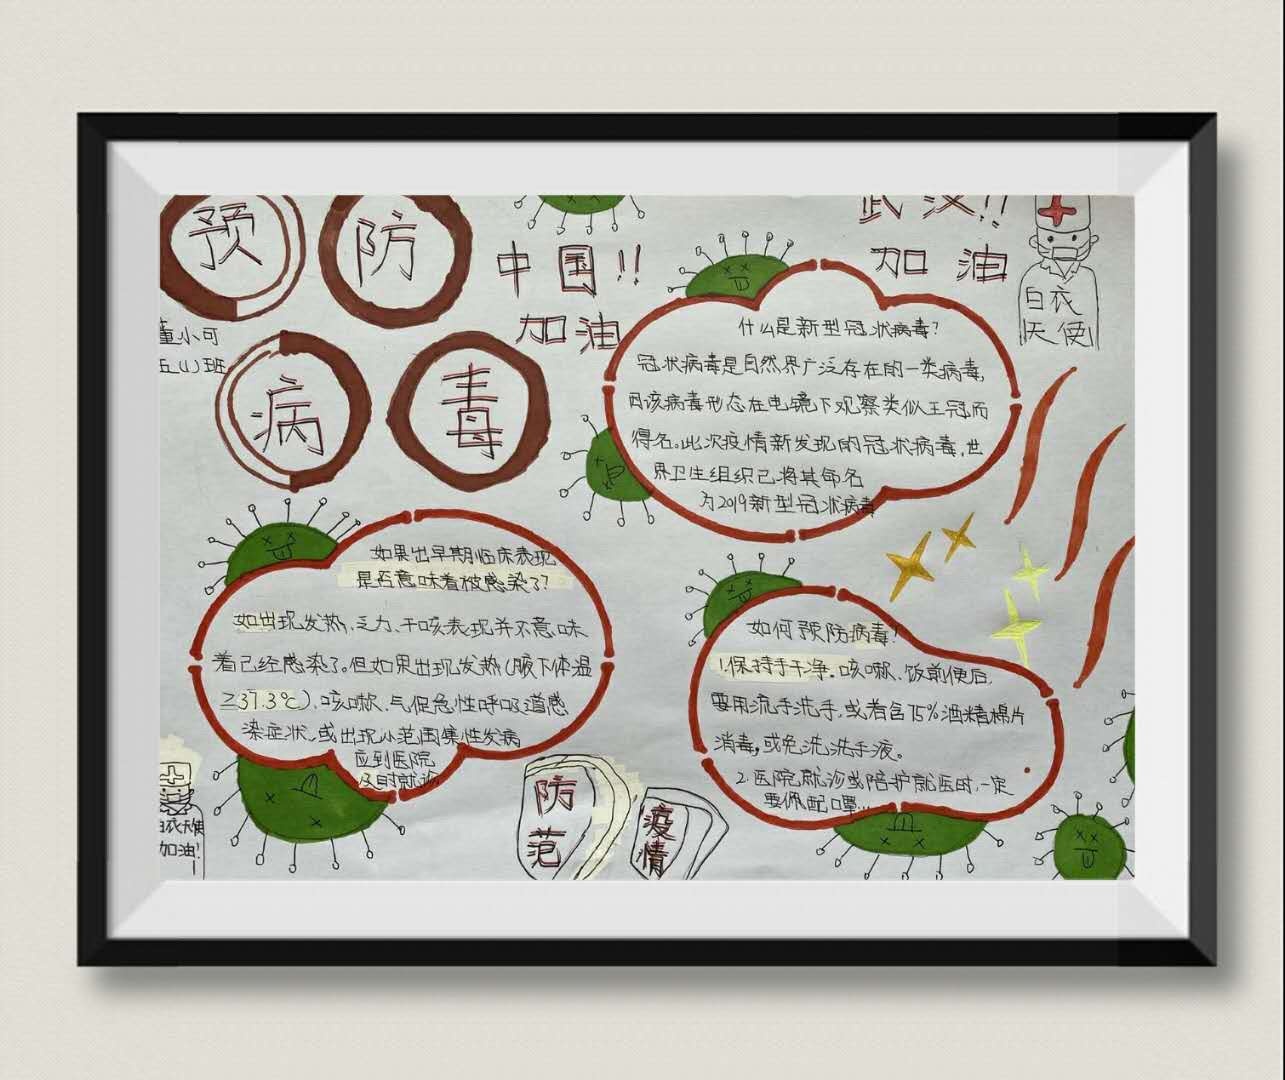 预防
病毒
董小可
五(1)班
中国!!
加油
武汉!!
加油
白衣
天使
什么是新型冠状病毒?
冠状病毒是自然界广泛存在的一类病毒,
因该病毒形态在电镜下观察类似王冠而
得名。此次疫情新发现的冠状病毒,世
界卫生组织已将其命名
为2019新型冠状病毒
如果出早期临床表现
是否意味着被感染了?
如出现发热、乏力、干咳表现并不意味
着已经感染了。但如果出现发热(腋下体温
≥37.3℃)、咳嗽、气促急性呼吸道感
染症状,或出现小范围集性发病
应到医院
及时就诊
如何预防病毒!
1.保持手干净。咳嗽、饭前便后,
要用流手洗手,或者含75%酒精棉片
消毒,或免洗洗手液。
2.医院就诊或陪护就医时,一定
要佩配口罩...
白衣天使
加油!
防范
疫情